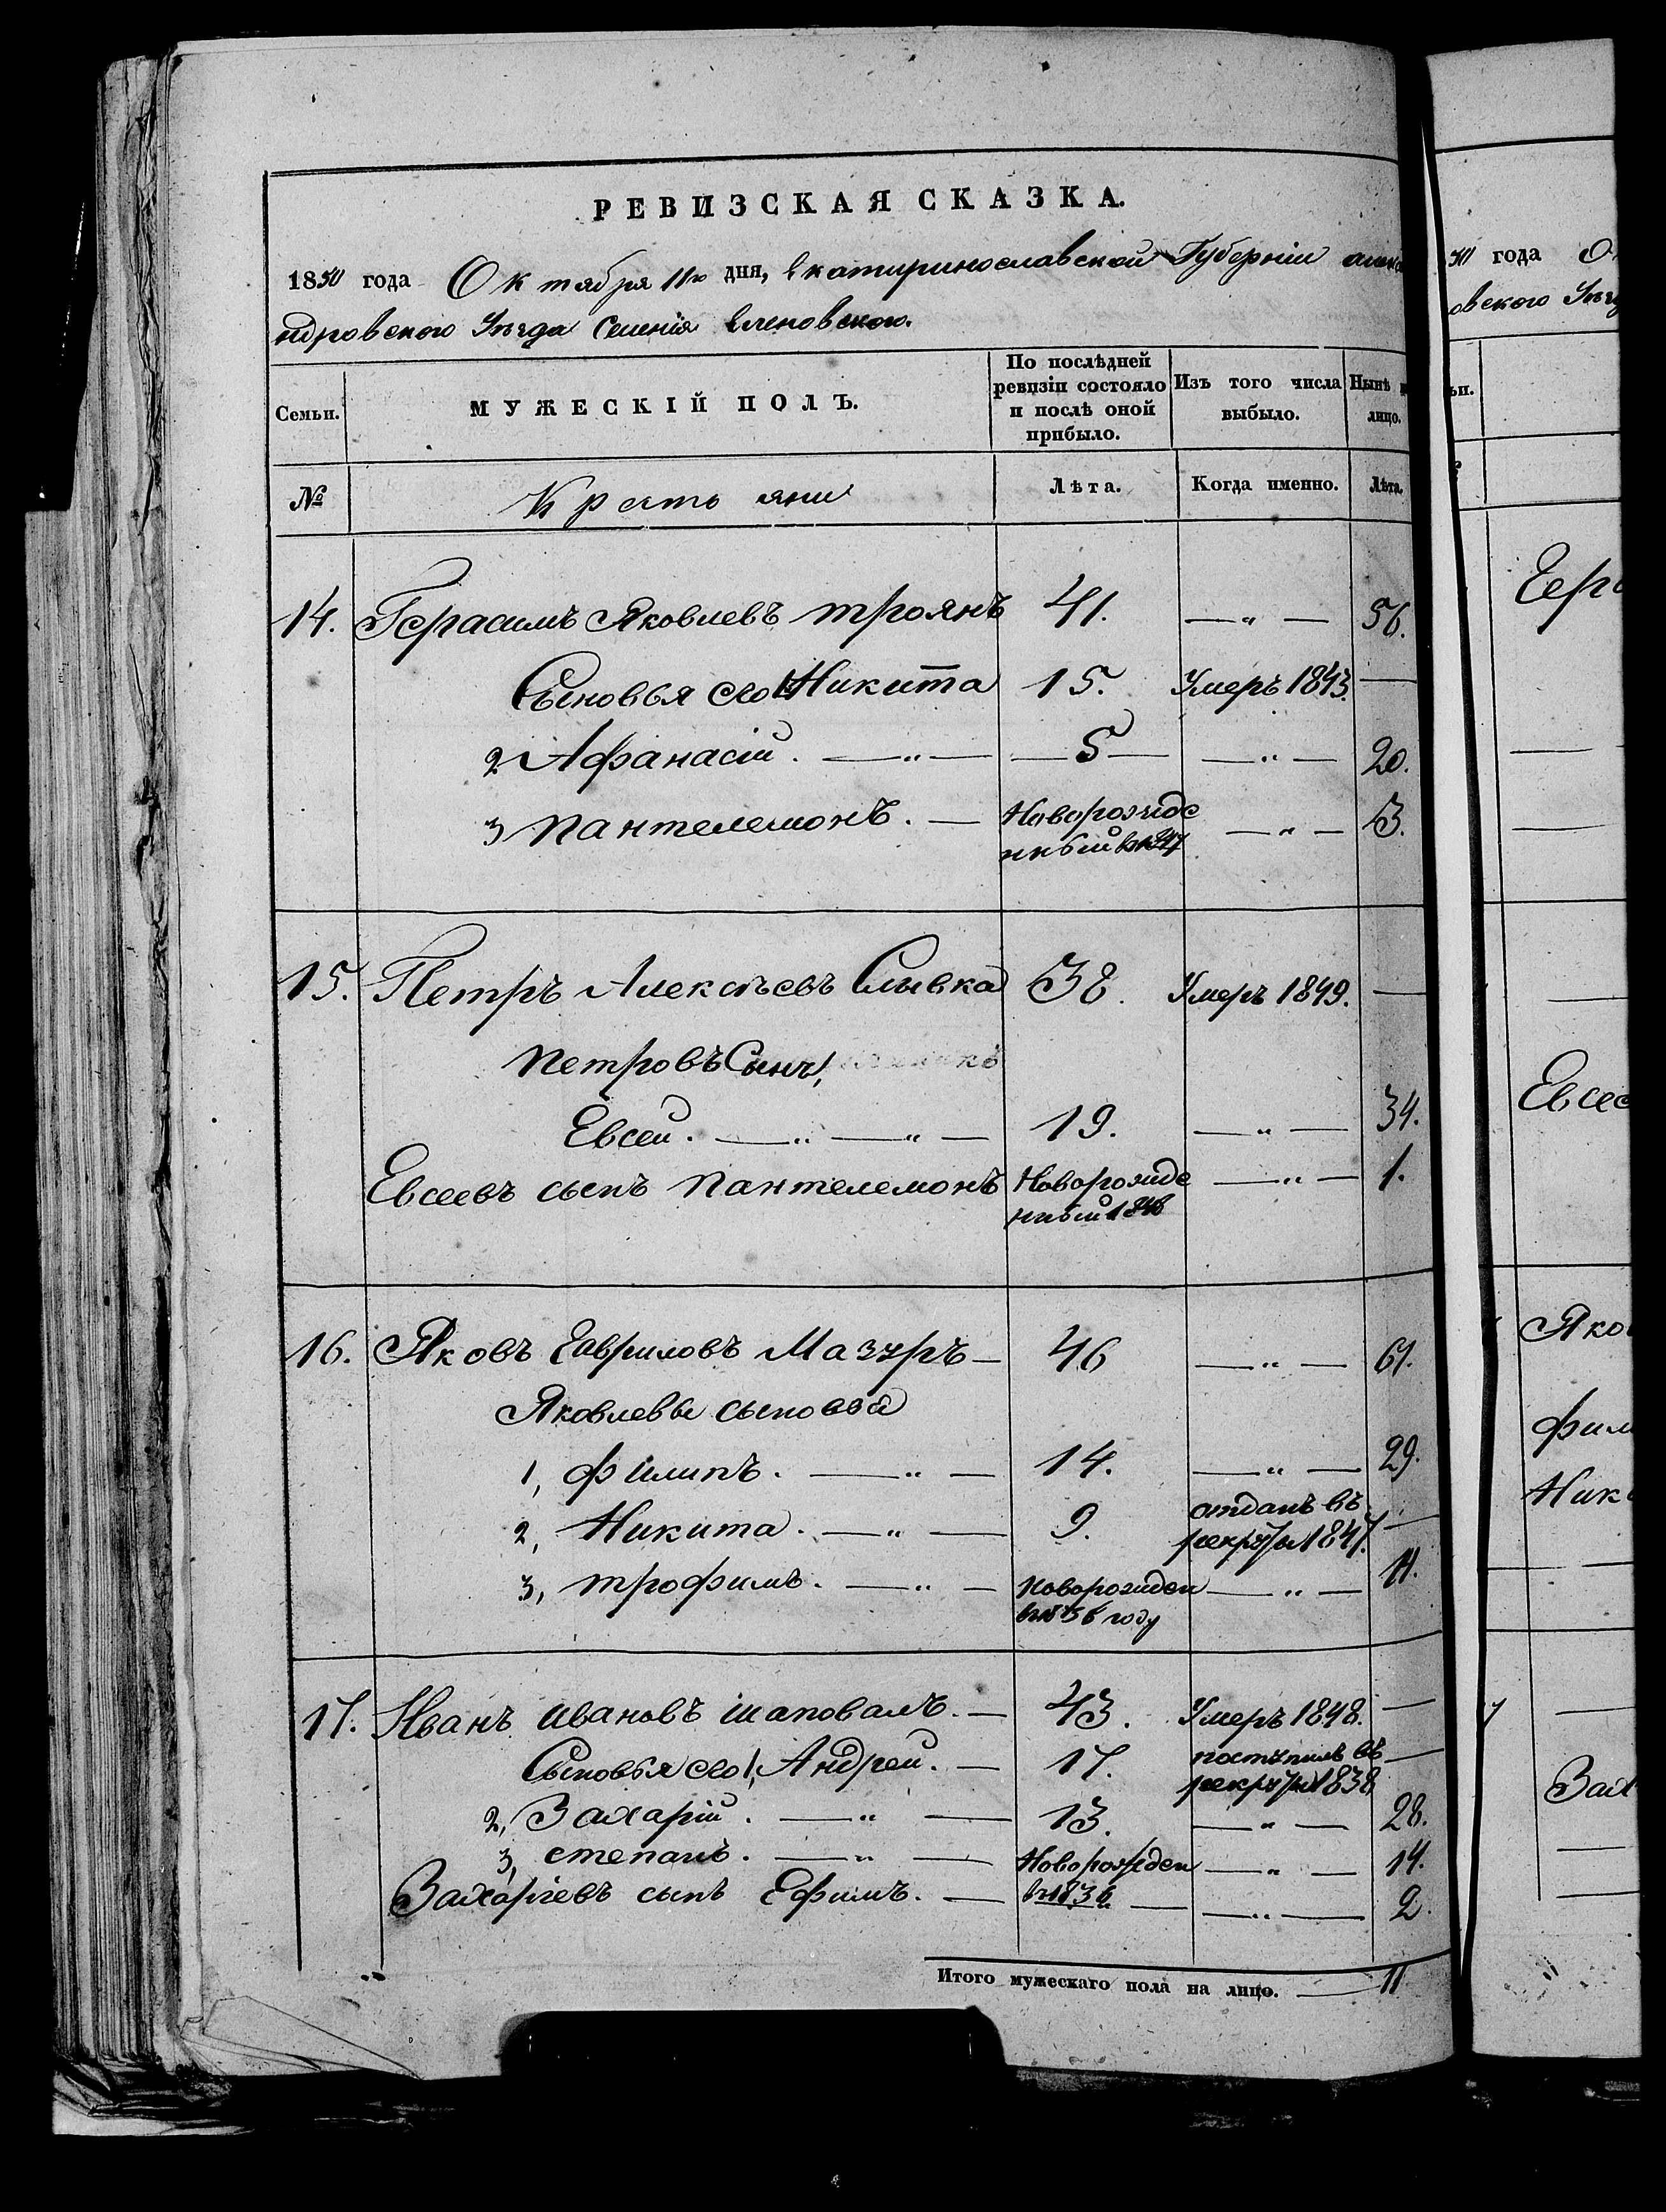 РЕВИЗСКАЯ СКАЗКА.
1850 года Октября 11го дня, Екатиринославской Губерніи алекса
ндровского Уѣзда Селенія Еленовского.
Семьи. МУЖЕСКІЙ ПОЛЪ. По послѣдней ревизіи состояло и послѣ оной прибыло. Изъ того числа выбыло. Нынѣ на лицо.
№ Крестьяни Лѣта. Когда именно. Лѣта.
14. Герасимъ Яковлевъ троянъ 41. —„— 56.
Сыновья его 1 Никита 15. Умеръ 1843. —
2 Афанасій. —„— —5— —„— 20.
3 Пантелемонъ. — Новорожде —„— 3.
нный въ 1847
15. Петръ Алексѣевъ Сливка 38. Умеръ 1849. —
Петровъ Сынъ 1,
Евсей. —„—„— 19. —„— 34.
Евсеевъ сынъ Пантелемонъ Новорожде —„— 1.
нный 1848
16. Яковъ Гавриловъ Мазуръ — 46 —„— 61.
Яковлевы сыновья
1, филипъ. —„— 14. —„— 29.
2, Никита. —„— 9. отданъ въ
рекруты 1847. —
3, трофимъ. —„— новорожден —„— 11.
году
17. Иванъ ивановъ шаповалъ. — 43. Умеръ 1848. —
Сыновья его 1, Андрей. — 17. поступилъ въ —
рекруты 1838
2, Захарій. —„— 13. —„— 28.
3, степанъ. —„— Новорожден —„— 14.
Захаріевъ сынъ Ефимъ. — въ 1836. — —„— 2.
Итого мужескаго пола на лицо. — 11
50 года О
овского Уѣзд
ьи.
Гера
Евсее
Яков
фил
Ник
Зах